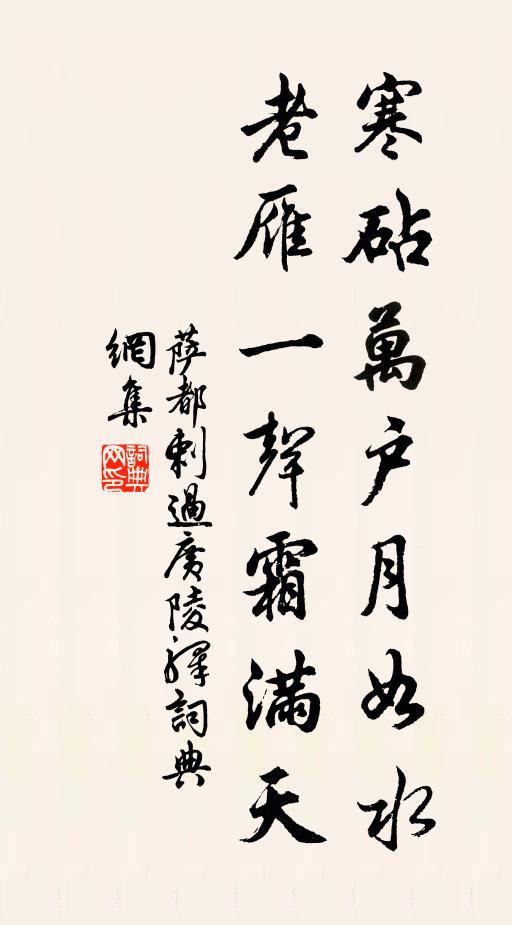 寒砧萬户月如水
老雁一聲霜滿天
薩都剌過廣陵驛詞典
網集
詞典網印